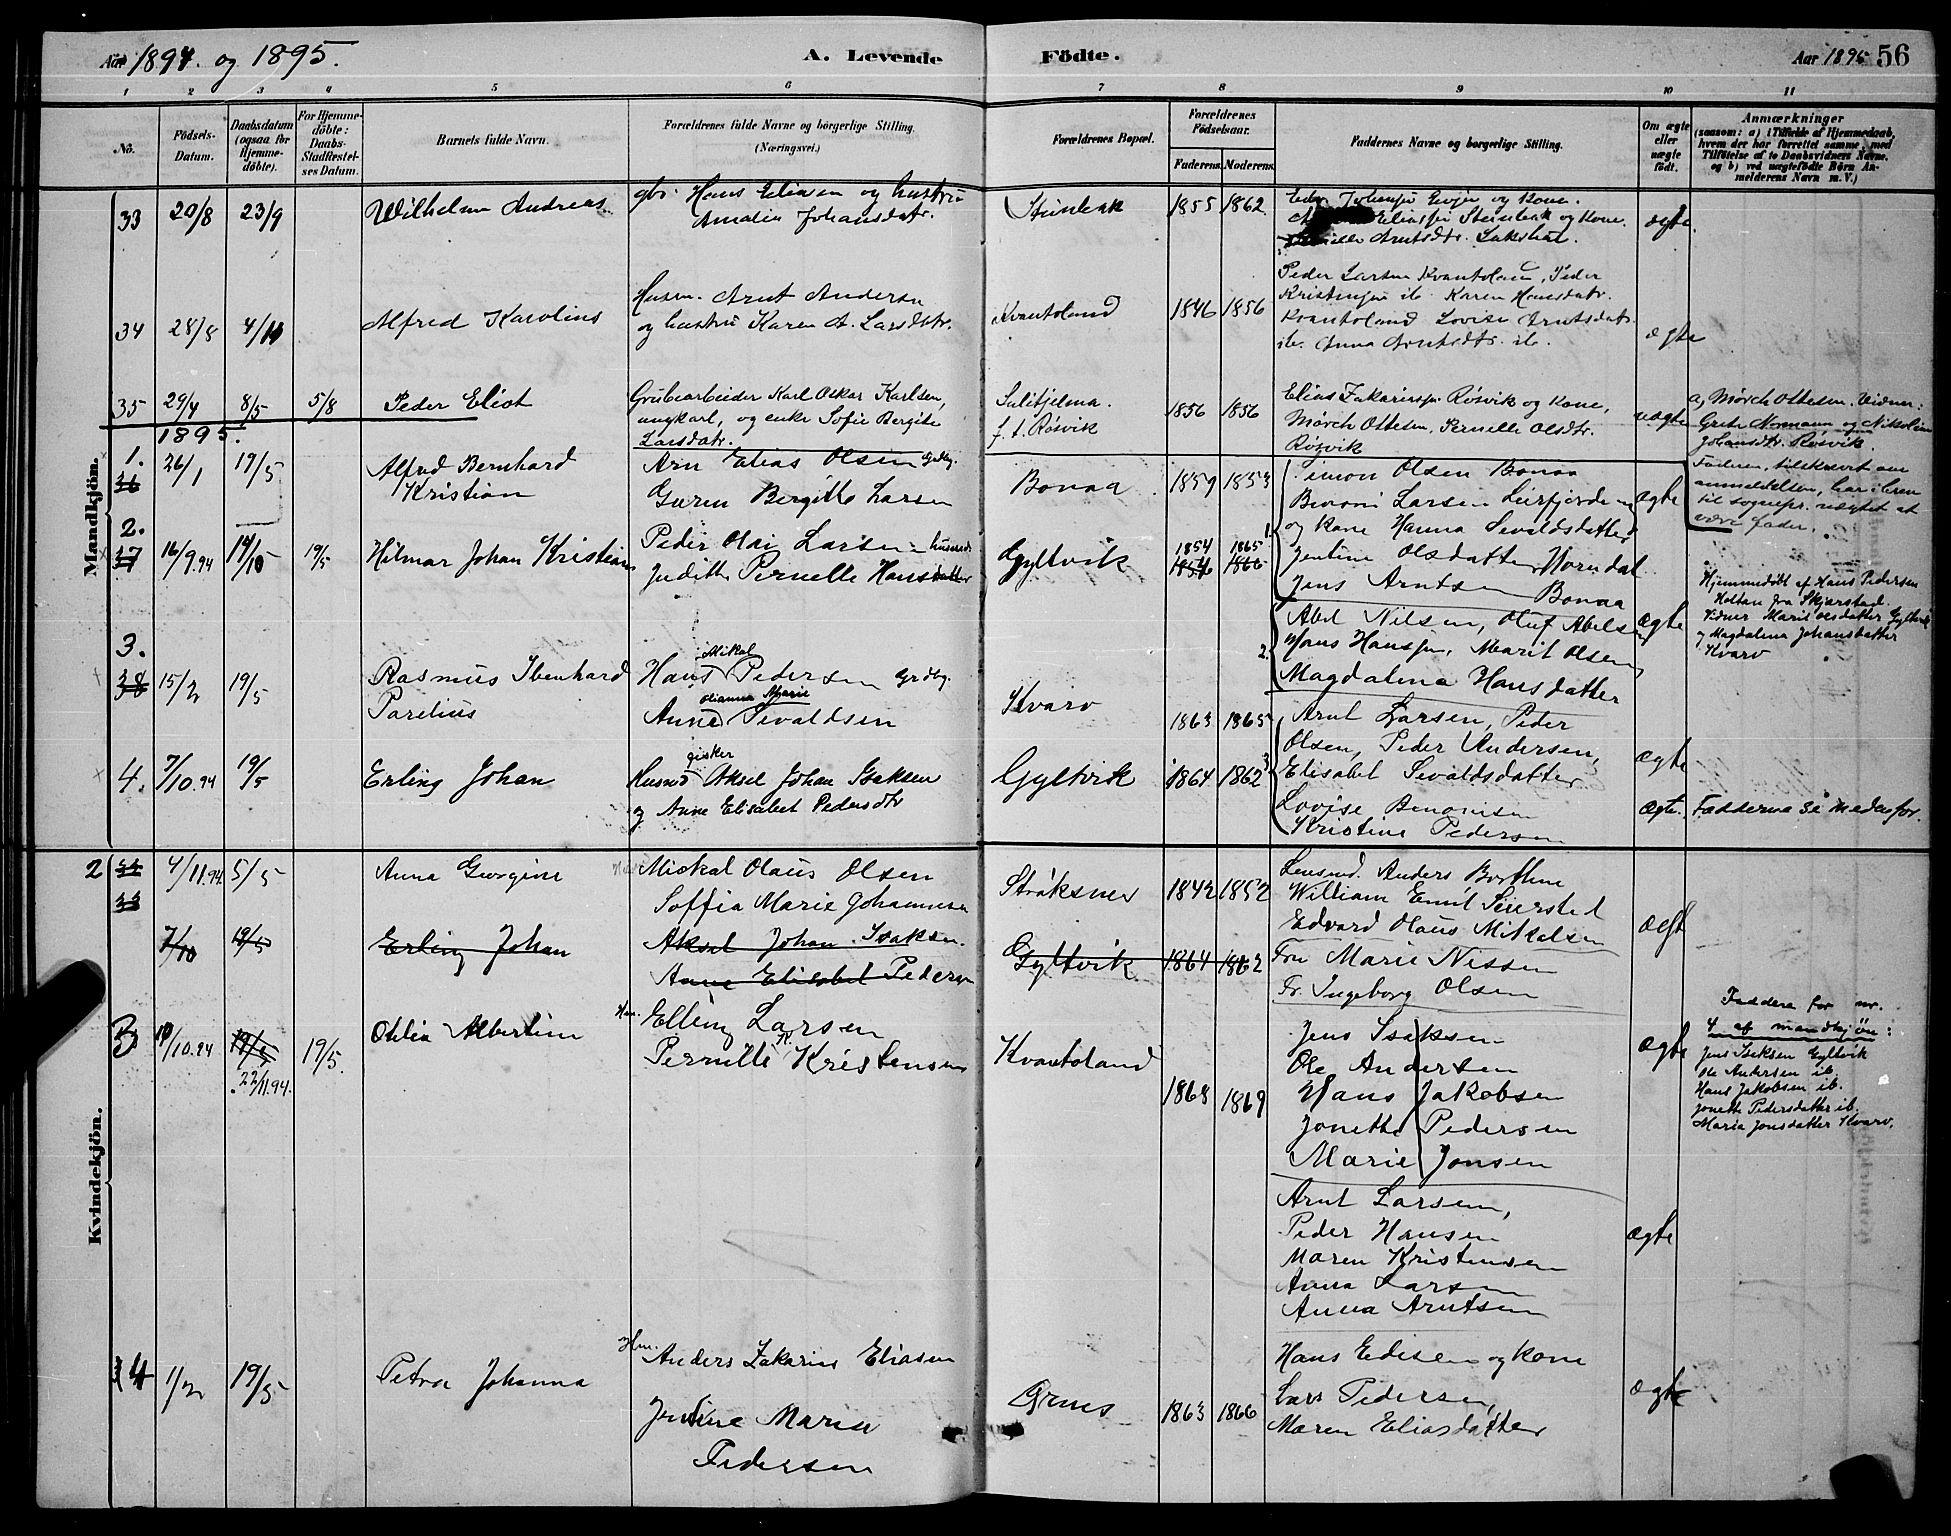 Aar 1894. og 1895.
A. Levende
Födte.
Aar 1895 56
1 2 3 4 5 6 7 8 9 10 11
No.
Födsels-
Datum.
Daabsdatum
(ogsaa for
Hjemme-
döbte).
For Hjemme-
döbte:
Daabs-
Stadfæstel-
ses Datum.
Barnets fulde Navn.
Forældrenes fulde Navne og borgerlige Stilling.
(Næringsvei.)
Forældrenes Bopæl.
Forældrenes
Födselsaar.
Faderens. Moderens.
Faddernes Navne og borgerlige Stilling.
Om ægte
eller
uægte
födt.
Anmærkninger
(saasom: a) i Tilfælde af Hjemmedaab,
hvem der har forrettet samme, med
Tilföielse af to Daabsvidners Navne,
og b) ved uægtefödte Börn An-
melderens Navn m. V.)
Mandkjön.
33 20/8 23/9 Wilhelm Andreas gbr. Hans Eliasen og hustru
Amalia Johansdatr.
1855 1862
Eliassen Steinbak og Kone.
Arntsdtr. Lakshol.
ægte.
34 28/8 4/11 Alfred Karolius
Husm. Arnt Andersen
og hustru Karen A. Larsdtr.
Kvantoland 1846 1856
Peder Larsen Kvantoland, Peder
Kristensen ib. Karen Hansdatr.
Kvantoland Lovise Arntsdatr.
ib. Anna Arntsdtr. ib.
ægte
35 29/4 8/5 5/8 Peder Eliot
Grubearbeider Karl Oskar Karlsen,
ungkarl, og enke Sofie Bergite
Larsdatr.
Sulitjelma.
f. t. Røsvik
1856 1856
Elias Zakariassen Røsvik og Kone,
Mörch Ottesen, Pernelle Olsdtr.
Røsvik
uægte
a, Mörch Ottesen. Vidner:
Grete Normann og Nikoline
Johansdtr. Røsvik.
Faderen, tilskrevet om
anmeldelsen, har i brev
til sognepr. nægtet at
være fader.
1895.
1. 36 26/1 19/5 Alfred Bernhard
Kristian
Arn Elias Olsen Grdbg.
Guren Bergitte Larsen
Bonaa 1859 1853
Simon Olsen Bonaa
Benoni Larsen Leirfjorden
og kone Hanna Sevaldsdatter
Jentine Olsdatter Horndal
Jens Arntsen Bonaa
ægte
2. 37 16/9.94 14/10 19/5 Hilmar Johan Kristian
Peder Olai Larsen husmd.
Judith Pernelle Hansdatter
Gyltvik 1854 1865
1856 1866
Abel Nilsen, Oluf Abelsen
Hans Hanssen, Marit Olsen,
Magdalena Hansdatter
ægte
Hjemmedøbt af Hans Pedersen
Holtan fra Skjerstad.
Vidner Marit Olsdatter Gyltvik
og Magdalena Johansdatter
Kvarv
3. 38 15/2 19/5 Rasmus Ibenhard
Parelius
Hans Mikal Pedersen Grdbg.
Anne Olianna Marie Sevaldsen
Kvarv 1863 1865
Arnt Larsen, Peder
Olsen, Peder Andersen,
Elisabet Sevaldsdatter
Lovise Benonisen
Kristine Pedersen
ægte
4. 7/10.94 19/5 Erling Johan
fisker
Husmd Aksel Johan Isaksen
og Anne Elisabet Pedersdtr
Gyltvik 1864 1862
ægte. Fadderna se nedenfor.
Kvindekjön.
2 4/11.94. 5/5 Anna Georgine
Mickal Olaus Olsen
Soffia Marie Johannesen
Stråksnes 1842 1852
Lensmd. Anders Borthne
William Emil Seiersted
Edvard Olaus Mikalsen
Fru Marie Nissen
Fr. Ingeborg Olsen
ægt
7/10 19/5 Erling Johan
Aksel Johan Isaksen.
Anne Elisabet Pedersen
Gyltvik 1864 1862
3 10/10.94 19/5 19/5.
22/11.94.
Otilia Albertine
Hm. Elling Larsen
Pernille K. Kristensen
Kvantoland
1868 1869
Jens Isaksen
Ole Andersen
Hans Jakobsen
Jonette Pedersen
Marie Jonsen
ægte
Faddere for nr.
4 af mandkjøn:
Jens Isaksen Gyltvik
Ole Andersen ib.
Hans Jakobsen ib.
Jonette Pedersdatter ib.
Maria Jonsdatter Kvarv.
Arnt Larsen,
Peder Hansen
Maren Kristensen
Anna Larsen
Anna Arntsen
ægte
4 1/2 19/5 Petra Johanna
Hm. Anders Zakarias Eliasen
Jentine Maria
Pedersen
1863 1866
Hans Edisen og kone
Lars Pedersen,
Maren Eliasdatter
ægte